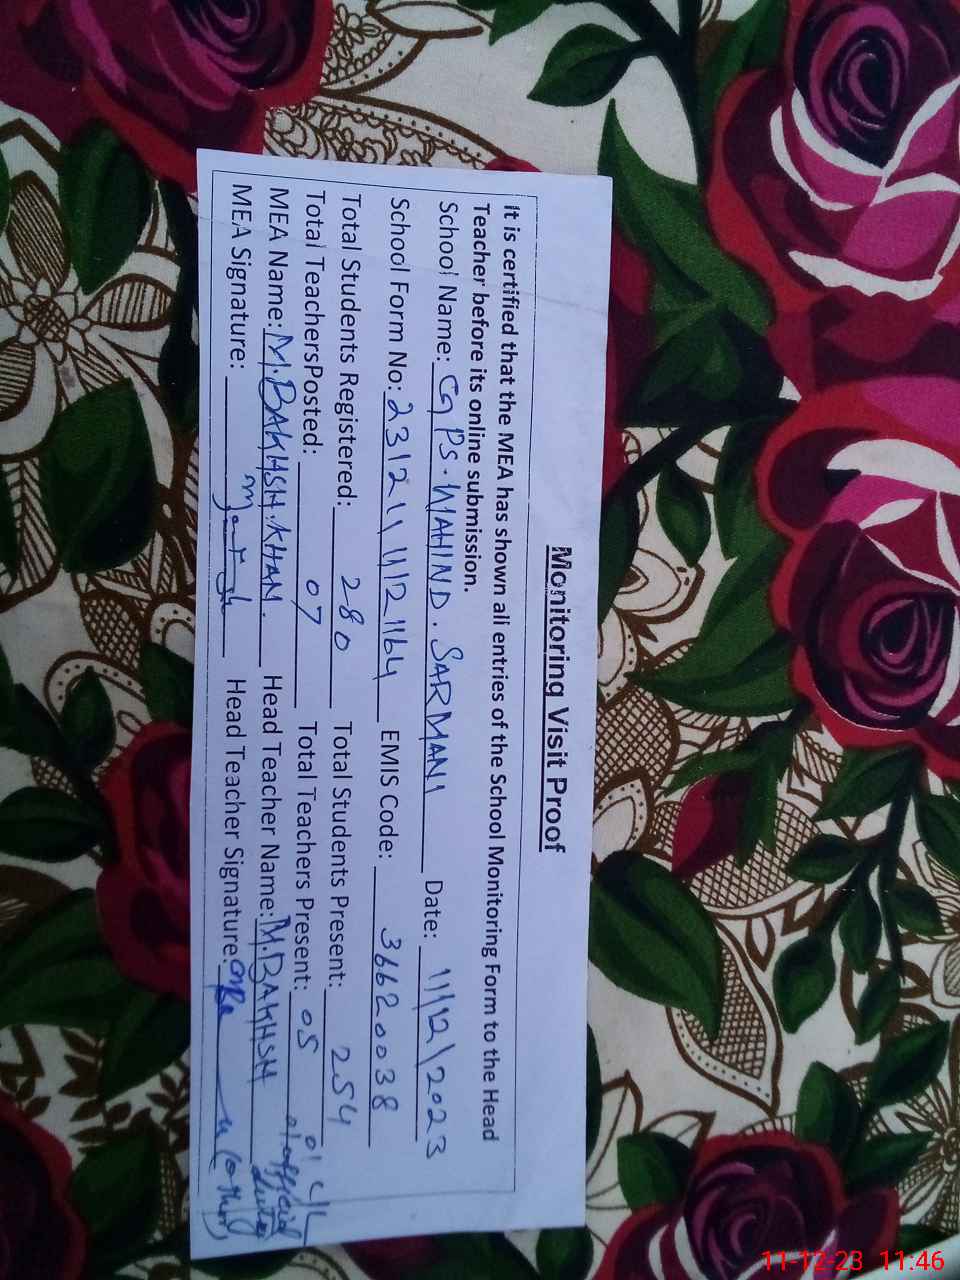 Monitoring Visit Proof
It is certified that the MEA has shown all entries of the School Monitoring Form to the Head
Teacher before its online submission.
School Name: GPS. WAHIND. SARMANI Date: 11/12/2023
School Form No: 2312 1164 EMIS Code: 36620038
Total Students Registered: 280 Total Students Present: 254
Total TeachersPosted: 07 Total Teachers Present: 05 01 CL
MEA Name: M.BAKHSH.KHAN. Head Teacher Name: M.BAKHSH 01 official duty
MEA Signature: Head Teacher Signature: (other)
11-12-23 11:46